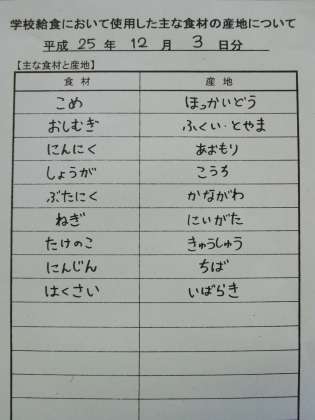 学校給食において使用した主な食材の産地について
平成 25 年 12 月 3 日分
【主な食材と産地】
食材 産地
こめ ほっかいどう
おしむぎ ふくい・とやま
にんにく あおもり
しょうが こうち
ぶたにく かながわ
ねぎ にいがた
たけのこ きゅうしゅう
にんじん ちば
はくさい いばらき